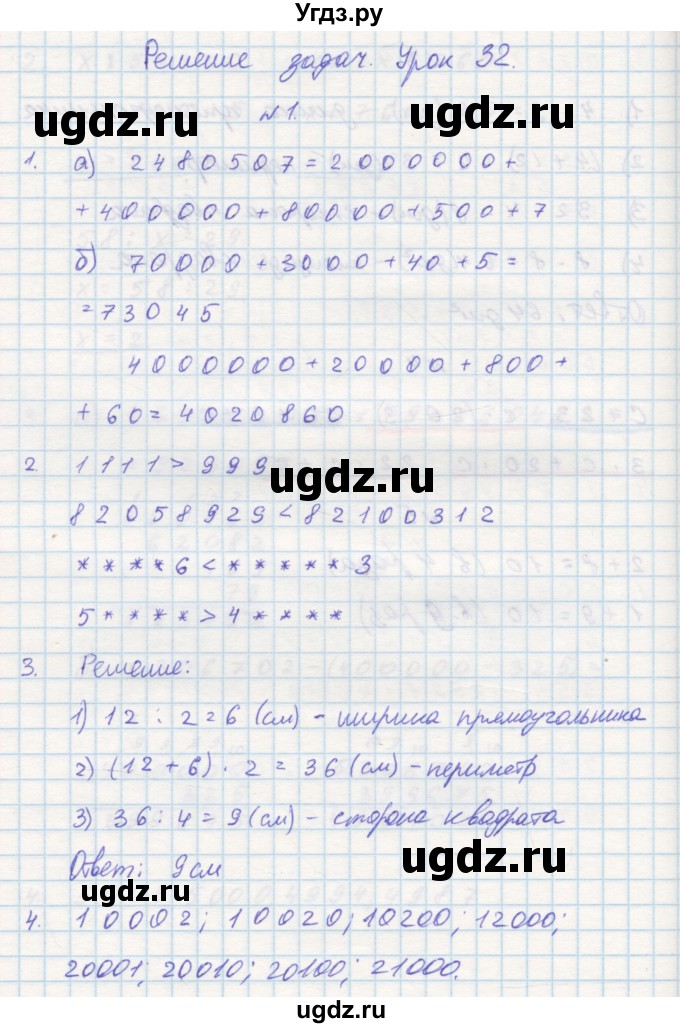 Угдз.ру
Решение задач. Урок 32.
№1.
1. а) 2480507 = 2000000 +
+ 400000 + 80000 + 500 + 7
б) 70000 + 3000 + 40 + 5 =
= 73045
4000000 + 20000 + 800 +
+ 60 = 4020860
2. 1111 > 999
82058929 < 82100312
* * * * 6 < * * * * * 3
5 * * * * > 4 * * * *
3. Решение:
1) 12 : 2 = 6 (см) - ширина прямоугольника
2) (12 + 6) · 2 = 36 (см) - периметр
3) 36 : 4 = 9 (см) - сторона квадрата
Ответ: 9 см
4. 10002; 10020; 10200; 12000;
20001; 20010; 20100; 21000.
ugdz.ru
ugdz.ru
ugdz.ru
ugdz.ru
ugdz.ru
ugdz.ru
ugdz.ru
ugdz.ru